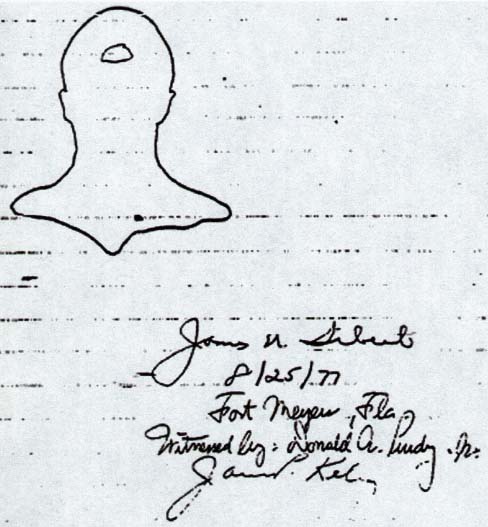 James W. Sibert
8/25/77
Fort Meyers, Fla
Witnessed by: Donald A. Purdy Jr.
James P. Kelly